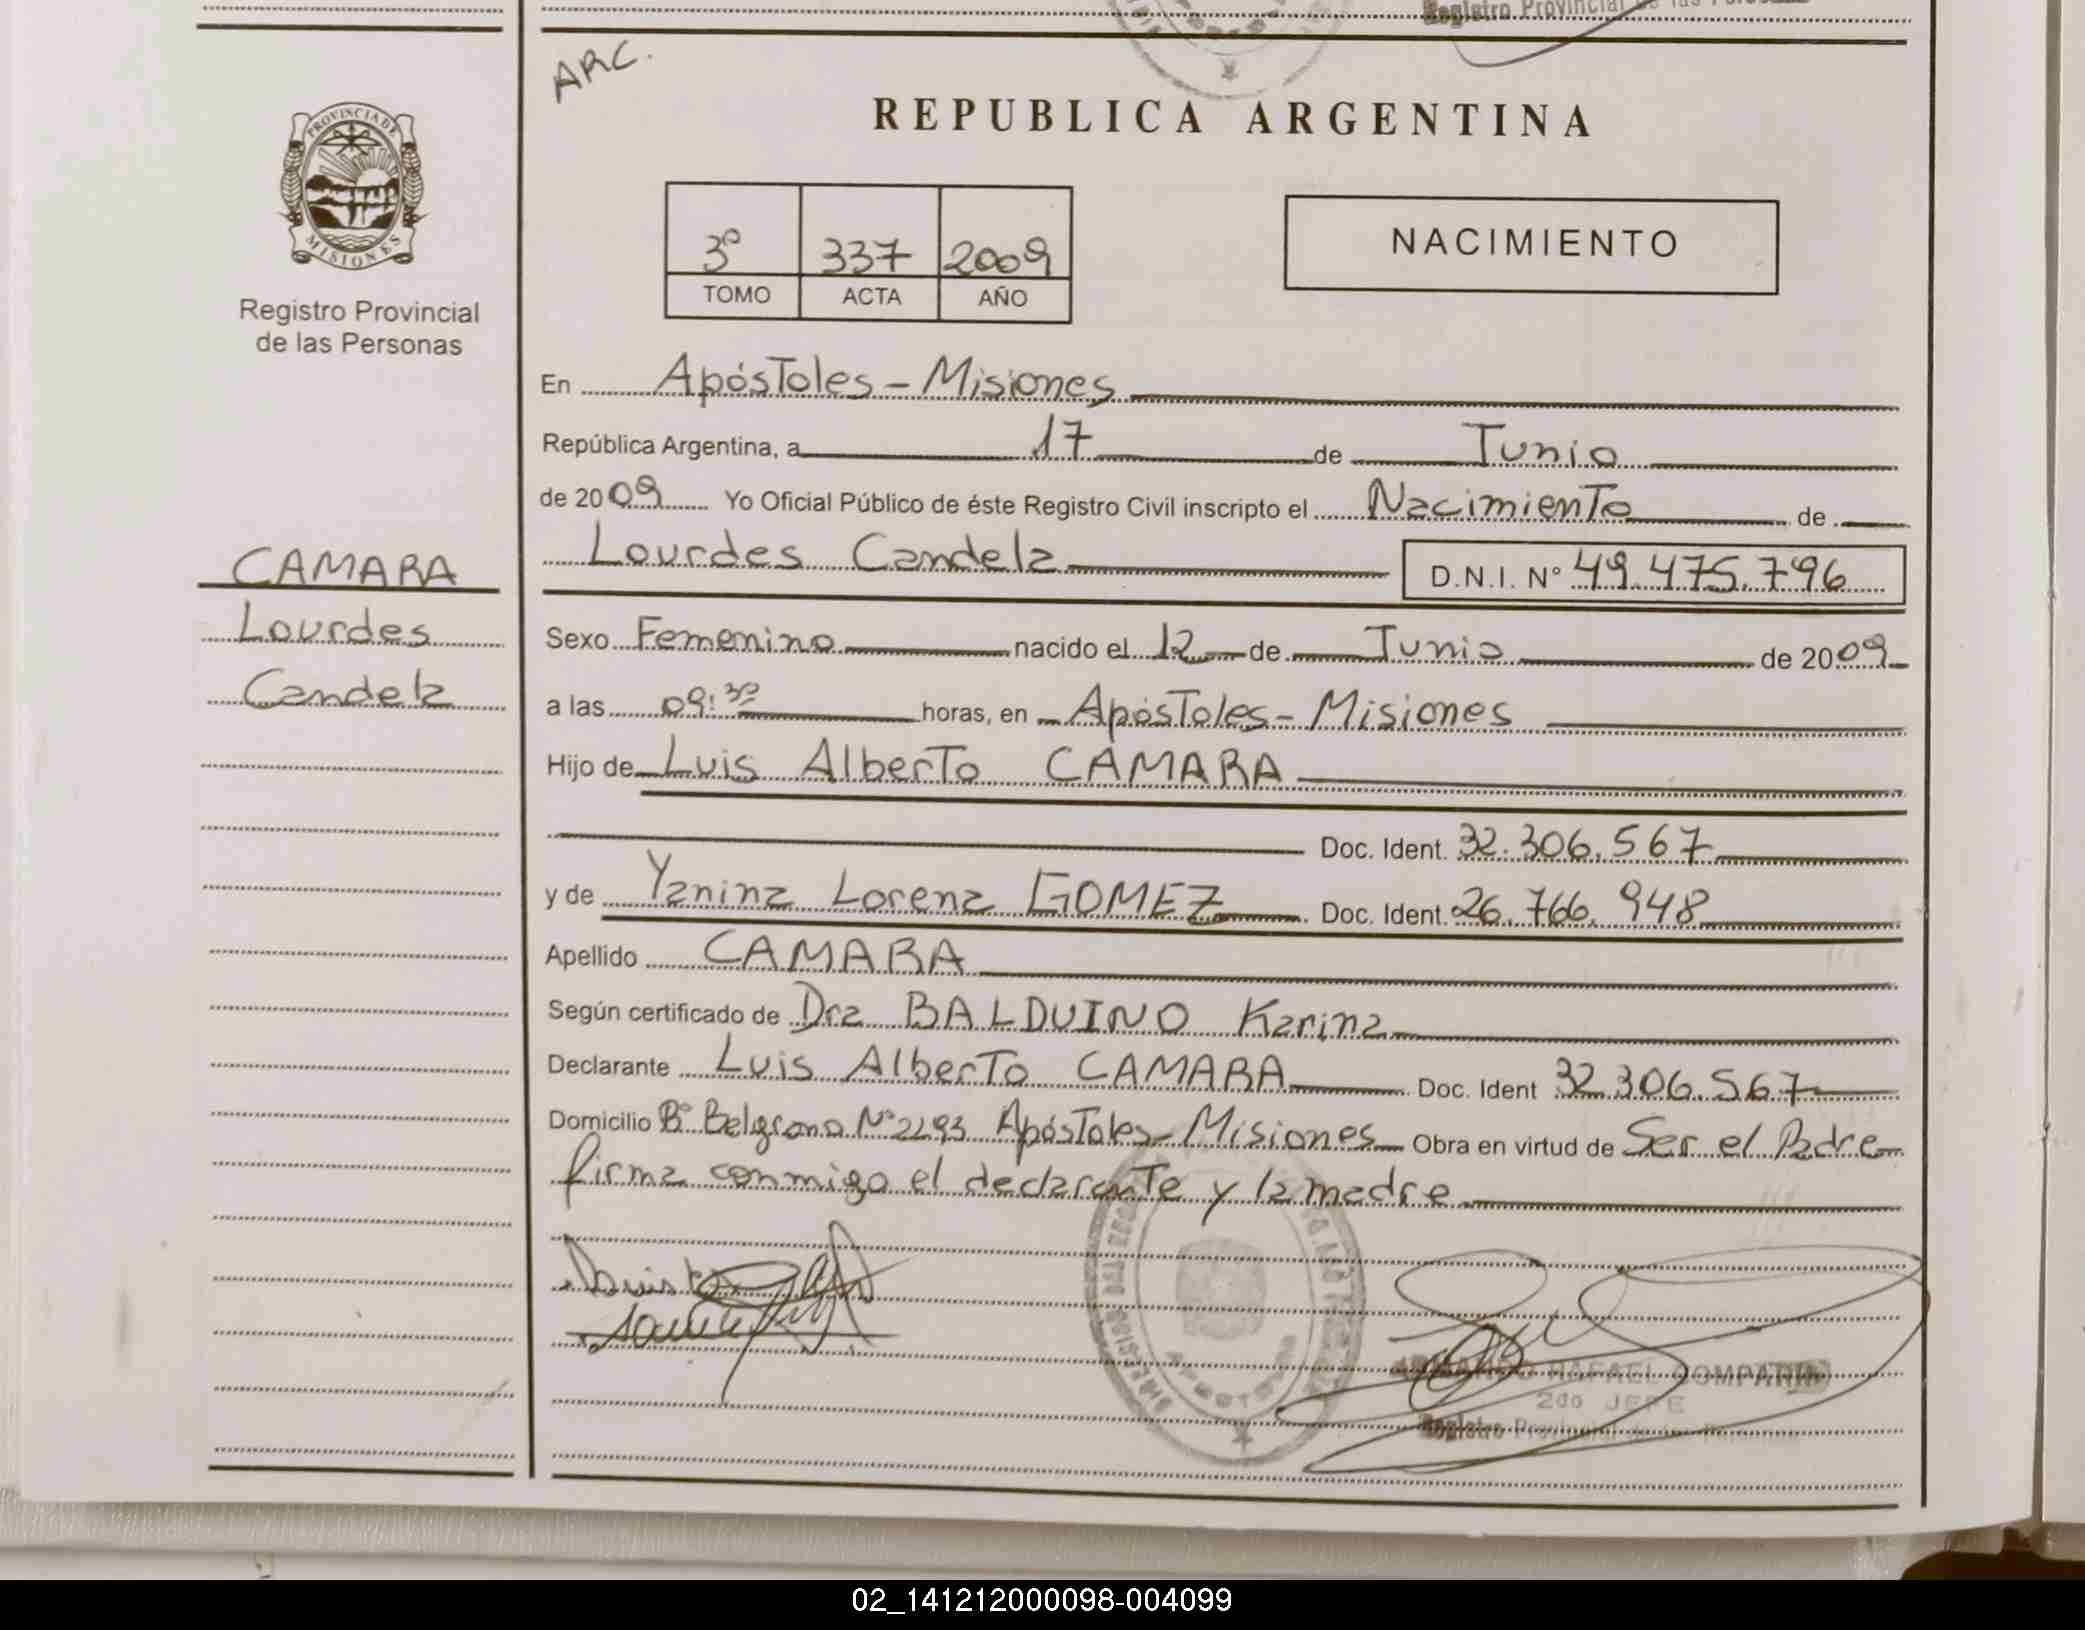 Registro Provincial de las Personas
ARC.
REPUBLICA ARGENTINA
PROVINCIA DE
MISIONES
Registro Provincial
de las Personas
3º 337 2009
TOMO ACTA AÑO
NACIMIENTO
En Apóstoles - Misiones
República Argentina, a 17 de Junio
de 2009 Yo Oficial Público de éste Registro Civil inscripto el Nacimiento de
Lourdes Candela D.N.I. Nº 49.475.796
CAMARA
Lourdes
Candela
Sexo Femenino nacido el 12 de Junio de 2009
a las 09:30 horas, en Apóstoles - Misiones
Hijo de Luis Alberto CAMARA
Doc. Ident. 32.306.567
y de Yanina Lorena GOMEZ Doc. Ident. 26.766.948
Apellido CAMARA
Según certificado de Dra BALDUINO Karina
Declarante Luis Alberto CAMARA Doc. Ident 32.306.567
Domicilio Bº Belgrano Nº 2293 Apóstoles - Misiones Obra en virtud de Ser el Padre
firma conmigo el declarante y la madre
ARMANDO RAFAEL COMPARIN
2do JEFE
Registro Provincial de las Personas
02_141212000098-004099